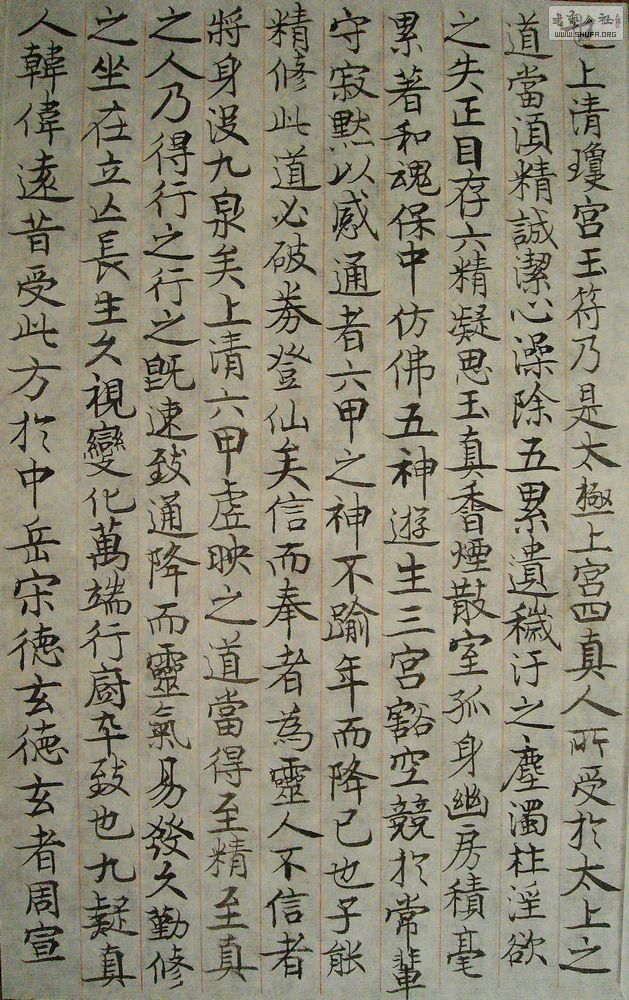 也上清瓊宮玉符乃是太極上宮四真人所受於太上之
道當湏精誠潔心澡除五累遺穢汙之塵濁杜淫欲
之失正目存六精凝思玉真香煙散室孤身幽房積毫
累著和魂保中仿佛五神遊生三宮豁空競於常輩
守寂默以感通者六甲之神不踰年而降已也子能
精修此道必破券登仙矣信而奉者為靈人不信者
將身沒九泉矣上清六甲虛映之道當得至精至真
之人乃得行之行之既速致通降而靈氣易發久勤修
之坐在立亡長生久視變化萬端行廚卒致也九疑真
人韓偉遠昔受此方於中岳宋德玄德玄者周宣
書法公社
www.SHUFA.ORG